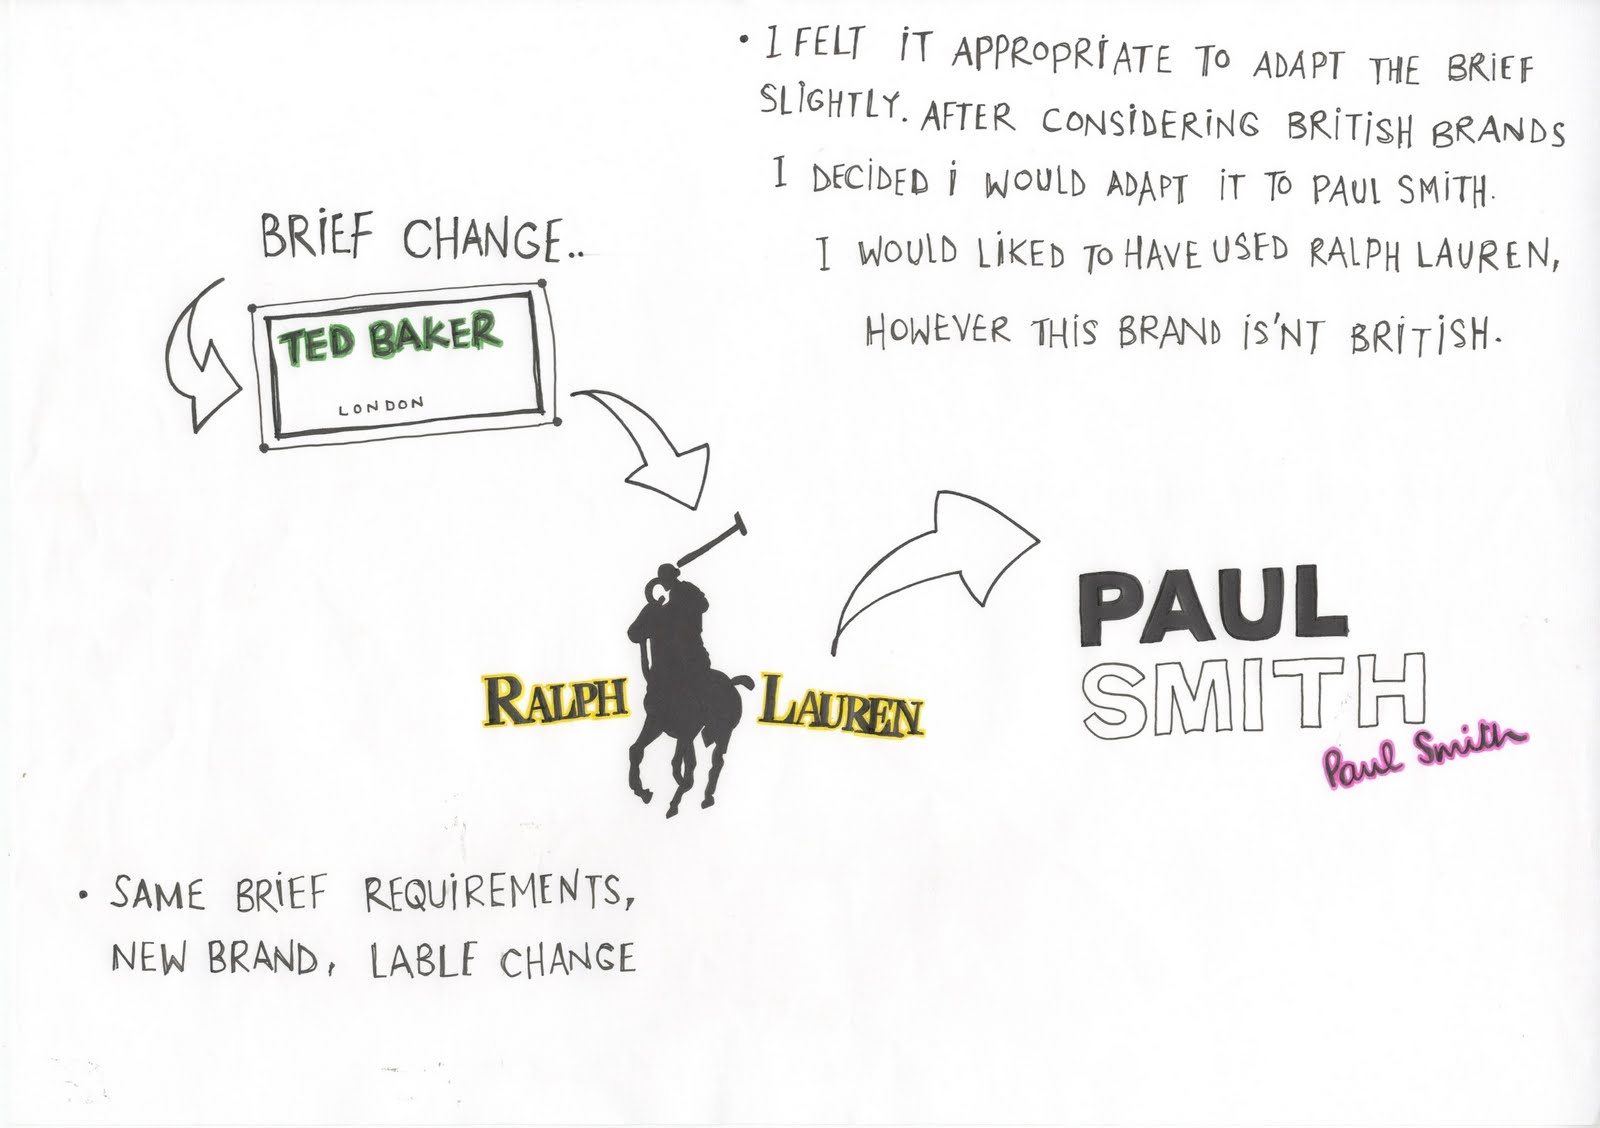 • I FELT IT APPROPRIATE TO ADAPT THE BRIEF
SLIGHTLY. AFTER CONSIDERING BRITISH BRANDS
I DECIDED I WOULD ADAPT IT TO PAUL SMITH.
I WOULD LIKED TO HAVE USED RALPH LAUREN,
HOWEVER THIS BRAND IS'NT BRITISH.
BRIEF CHANGE..
TED BAKER
LONDON
RALPH LAUREN
PAUL
SMITH
Paul Smith
• SAME BRIEF REQUIREMENTS,
NEW BRAND, LABLE CHANGE